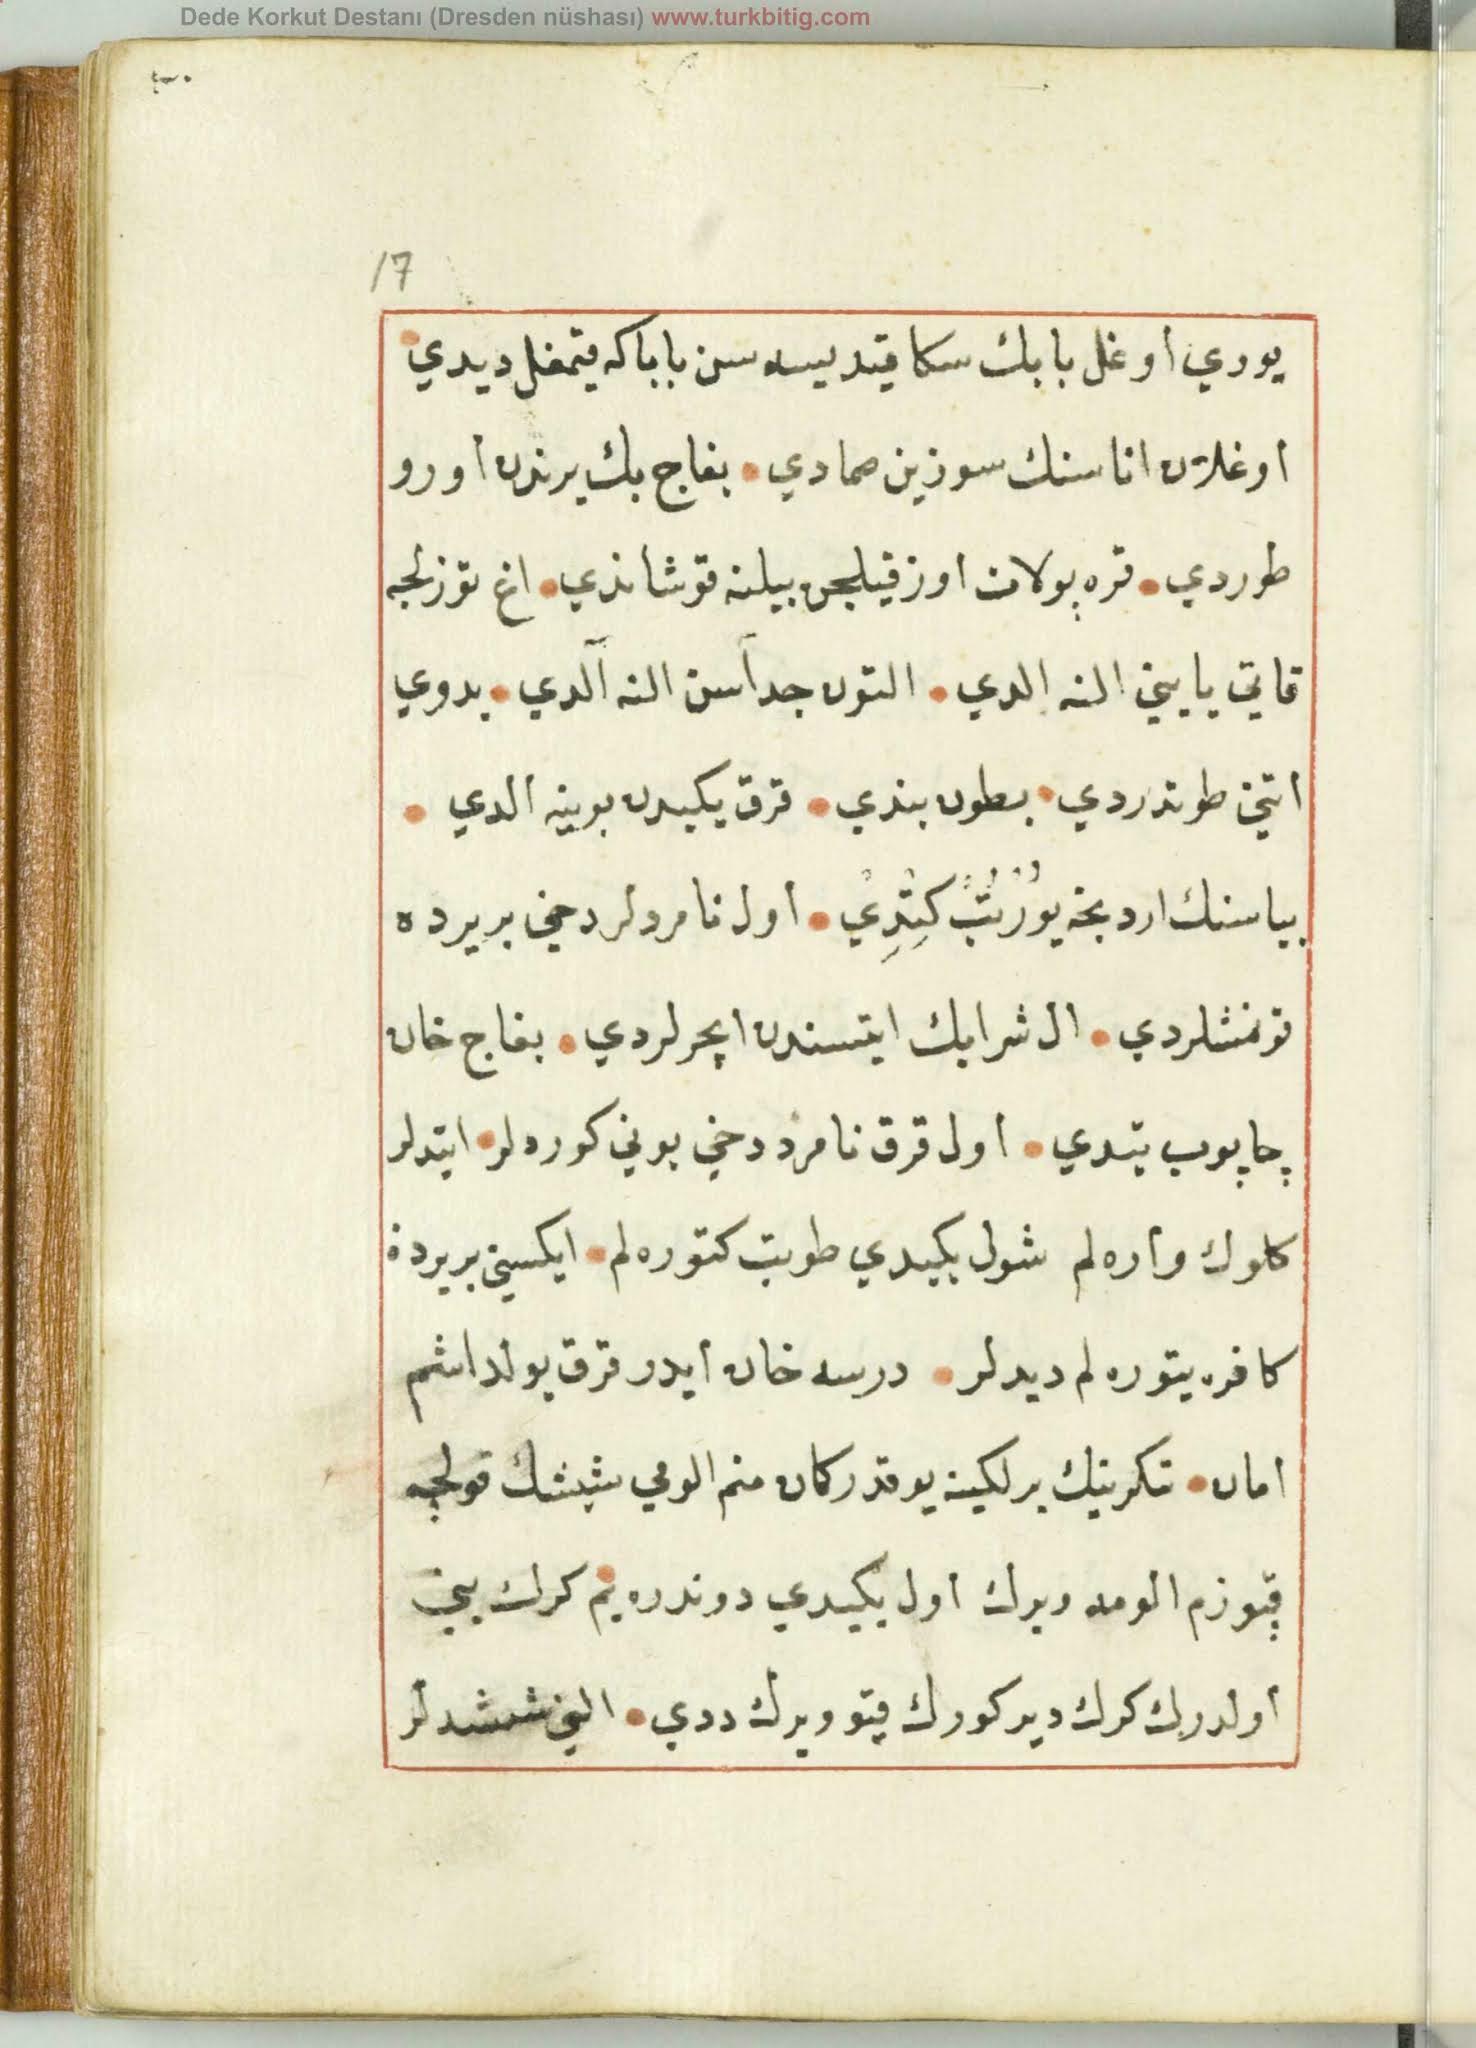 Dede Korkut Destanı (Dresden nüshası) www.turkbitig.com
17
يوري أوغل بابك سكا قيديسه سن باباكه قيمغل ديدي
اوغلان اناسنك سوزين صمادي • بغاج بك يرندن أورو
طوردي • قره پولات اوز قيلجن بيلنه قوشاندي • اغ توزلجه
قاتي ياييني النه الدي • التون جداسن النه آلدي • بدوي
اتيني طوتدردي • بطون بندي • قرق يكيدن بوينه الدي •
بباسنك اردنجه يُورُتُبْ كِتْدِي • أول نامردلر دخي بر يرده
قونمشلردي • ال شرابك ايتسندن ايچرلردي • بغاج خان
چاپوب يتدي • أول قرق نامرد دخي بوني كورد لر • ايتدلر
كلوك واره لم شول يكيدي طوتب كتوره لم • ايكسيني بر يرده
كافره يتوره لم ديدلر • درسه خان أيدر قرق يولداشم
امان • تكرينك برلكينه يوقدر كمان منم الومي شيشك قولجه
قپوزم الومه ويرك اول يكيدي دوندره يم • كرك بني
أولدرك كرك ديركورك قپو ويرك ددي • اليني ششدلر